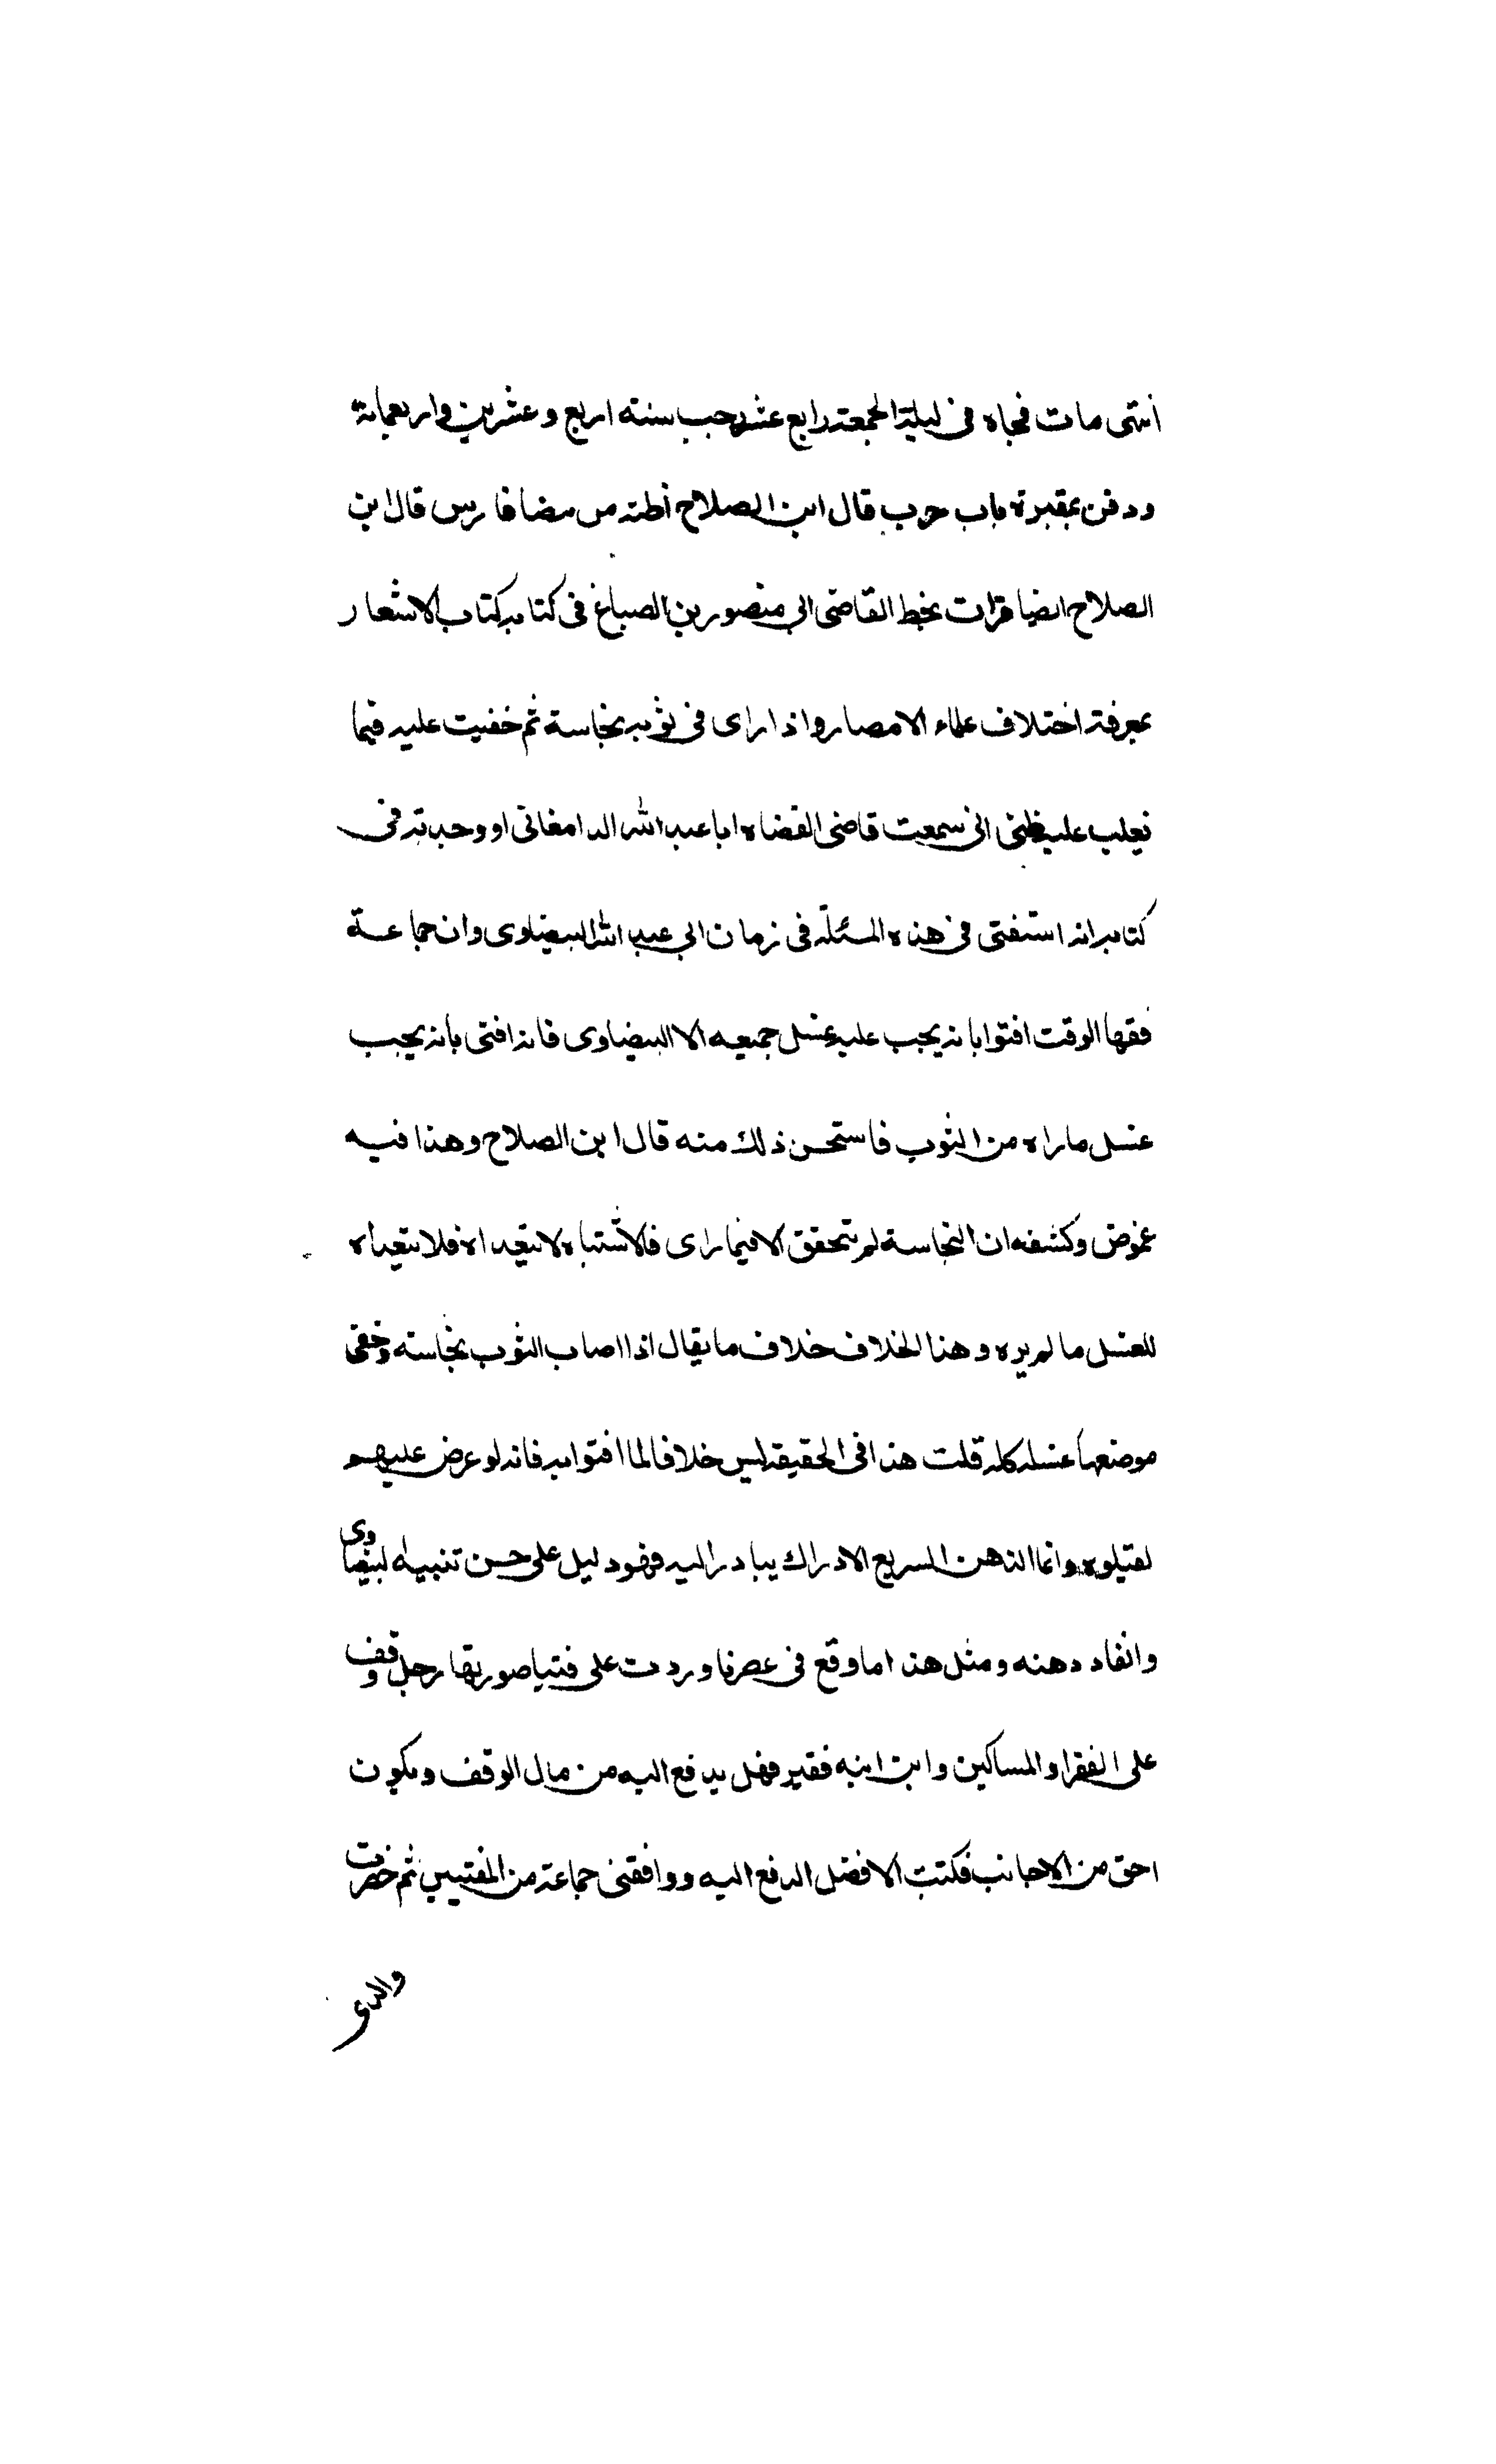 انتهى مات فجاه فى ليلة الجمعة رابع عشر رجب سنته اربع وعشرين واربعمائة
ودفن بمقبرة باب حرب قال ابن الصلاح أظنه من بيضا فارس قال ابن
الصلاح ايضا قرات بخط القاضى ابى منصور بن الصباغ فى كتابه كتاب الاشعار
بمعرفة اختلاف علماء الامصار واذا راى فى ثوبه نجاسة ثم خفيت عليه فيما
يغلب عليه ظنى انى سمعت قاضى القضاه ابا عبد الله الدامغانى او وجدته فى
كتابه انه استفتى فى هذه المسئلة فى زمان ابى عبد الله البيضاوى وان جماعة
فقها الوقت افتوا بانه يجب عليه غسل جميعه الا البيضاوى فانه افتى بانه يجب
غسل ما راه من الثوب فاستحسن ذلك منه قال ابن الصلاح وهذا فيه
غموض وكشفه ان النجاسة لم تتحقق الا فيما راى فالاشتباه لا يتعداه فلا يتعداه
للغسل ما لم يره وهذا الخلاف خلاف ما يقال اذا اصاب الثوب نجاسته وخفى
موضعها غسله كله قلت هذا فى الحقيقة ليس خلافا لما افتوا به فانه لو عرض عليهم
لقبلوه وانما الذهن السريع الادراك يبادر اليه فهو دليل على حسن تنبيه البيضاوى
وانقاد دهنه ومثل هذا ما وقع فى عصرنا وردت على فتيا صورتها رجل وقف
على الفقرا والمساكين وابن ابنه فقير فهل يدفع اليه من مال الوقف ويكون
احق من الاجانب فكتبت الافضل الدفع اليه ووافقنى جماعة من المفتيين ثم حضرت